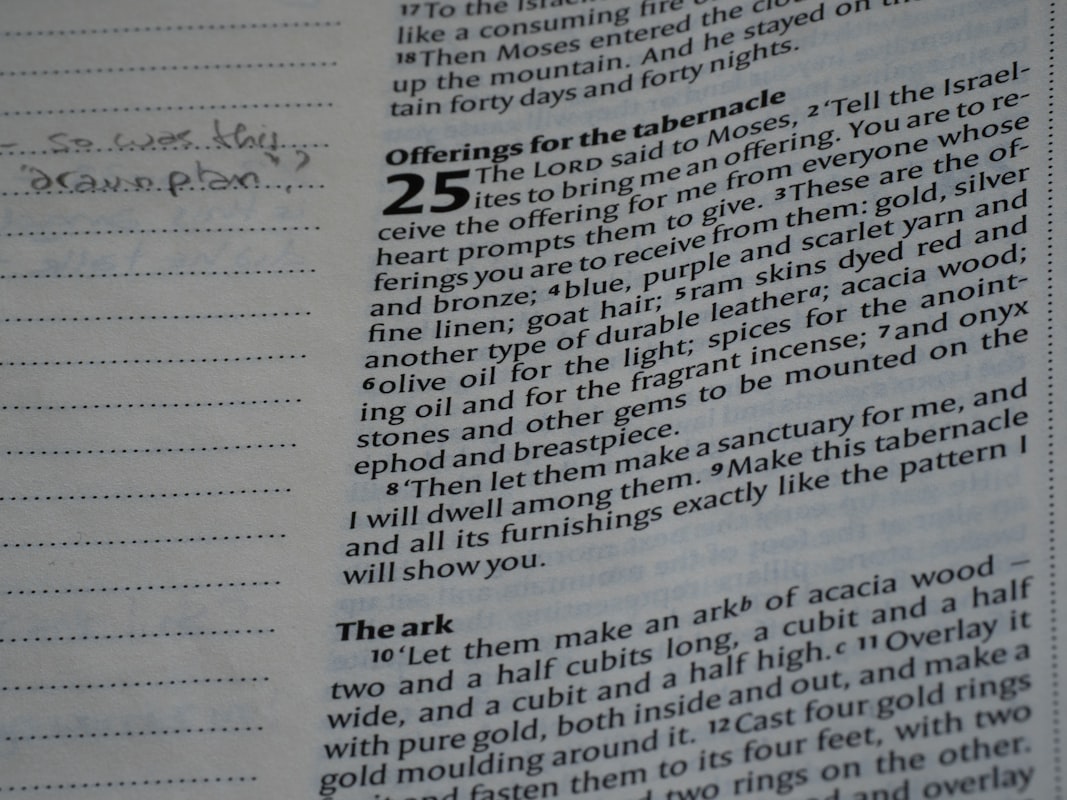 - so was this
"drawn plan"?
17 To the Isra
like a consuming fire
18 Then Moses entered the clo
up the mountain. And he stayed on
tain forty days and forty nights.
Offerings for the tabernacle
25 The LORD said to Moses, 2 ‘Tell the Israel-
ites to bring me an offering. You are to re-
ceive the offering for me from everyone whose
heart prompts them to give. 3 These are the of-
ferings you are to receive from them: gold, silver
and bronze; 4 blue, purple and scarlet yarn and
fine linen; goat hair; 5 ram skins dyed red and
another type of durable leather a; acacia wood;
6 olive oil for the light; spices for the anoint-
ing oil and for the fragrant incense; 7 and onyx
stones and other gems to be mounted on the
ephod and breastpiece.
8 ‘Then let them make a sanctuary for me, and
I will dwell among them. 9 Make this tabernacle
and all its furnishings exactly like the pattern I
will show you.
The ark
10 ‘Let them make an ark b of acacia wood –
two and a half cubits long, a cubit and a half
wide, and a cubit and a half high. c 11 Overlay it
with pure gold, both inside and out, and make a
gold moulding around it. 12 Cast four gold rings
and fasten them to its four feet, with two
two rings on the other.
and overlay